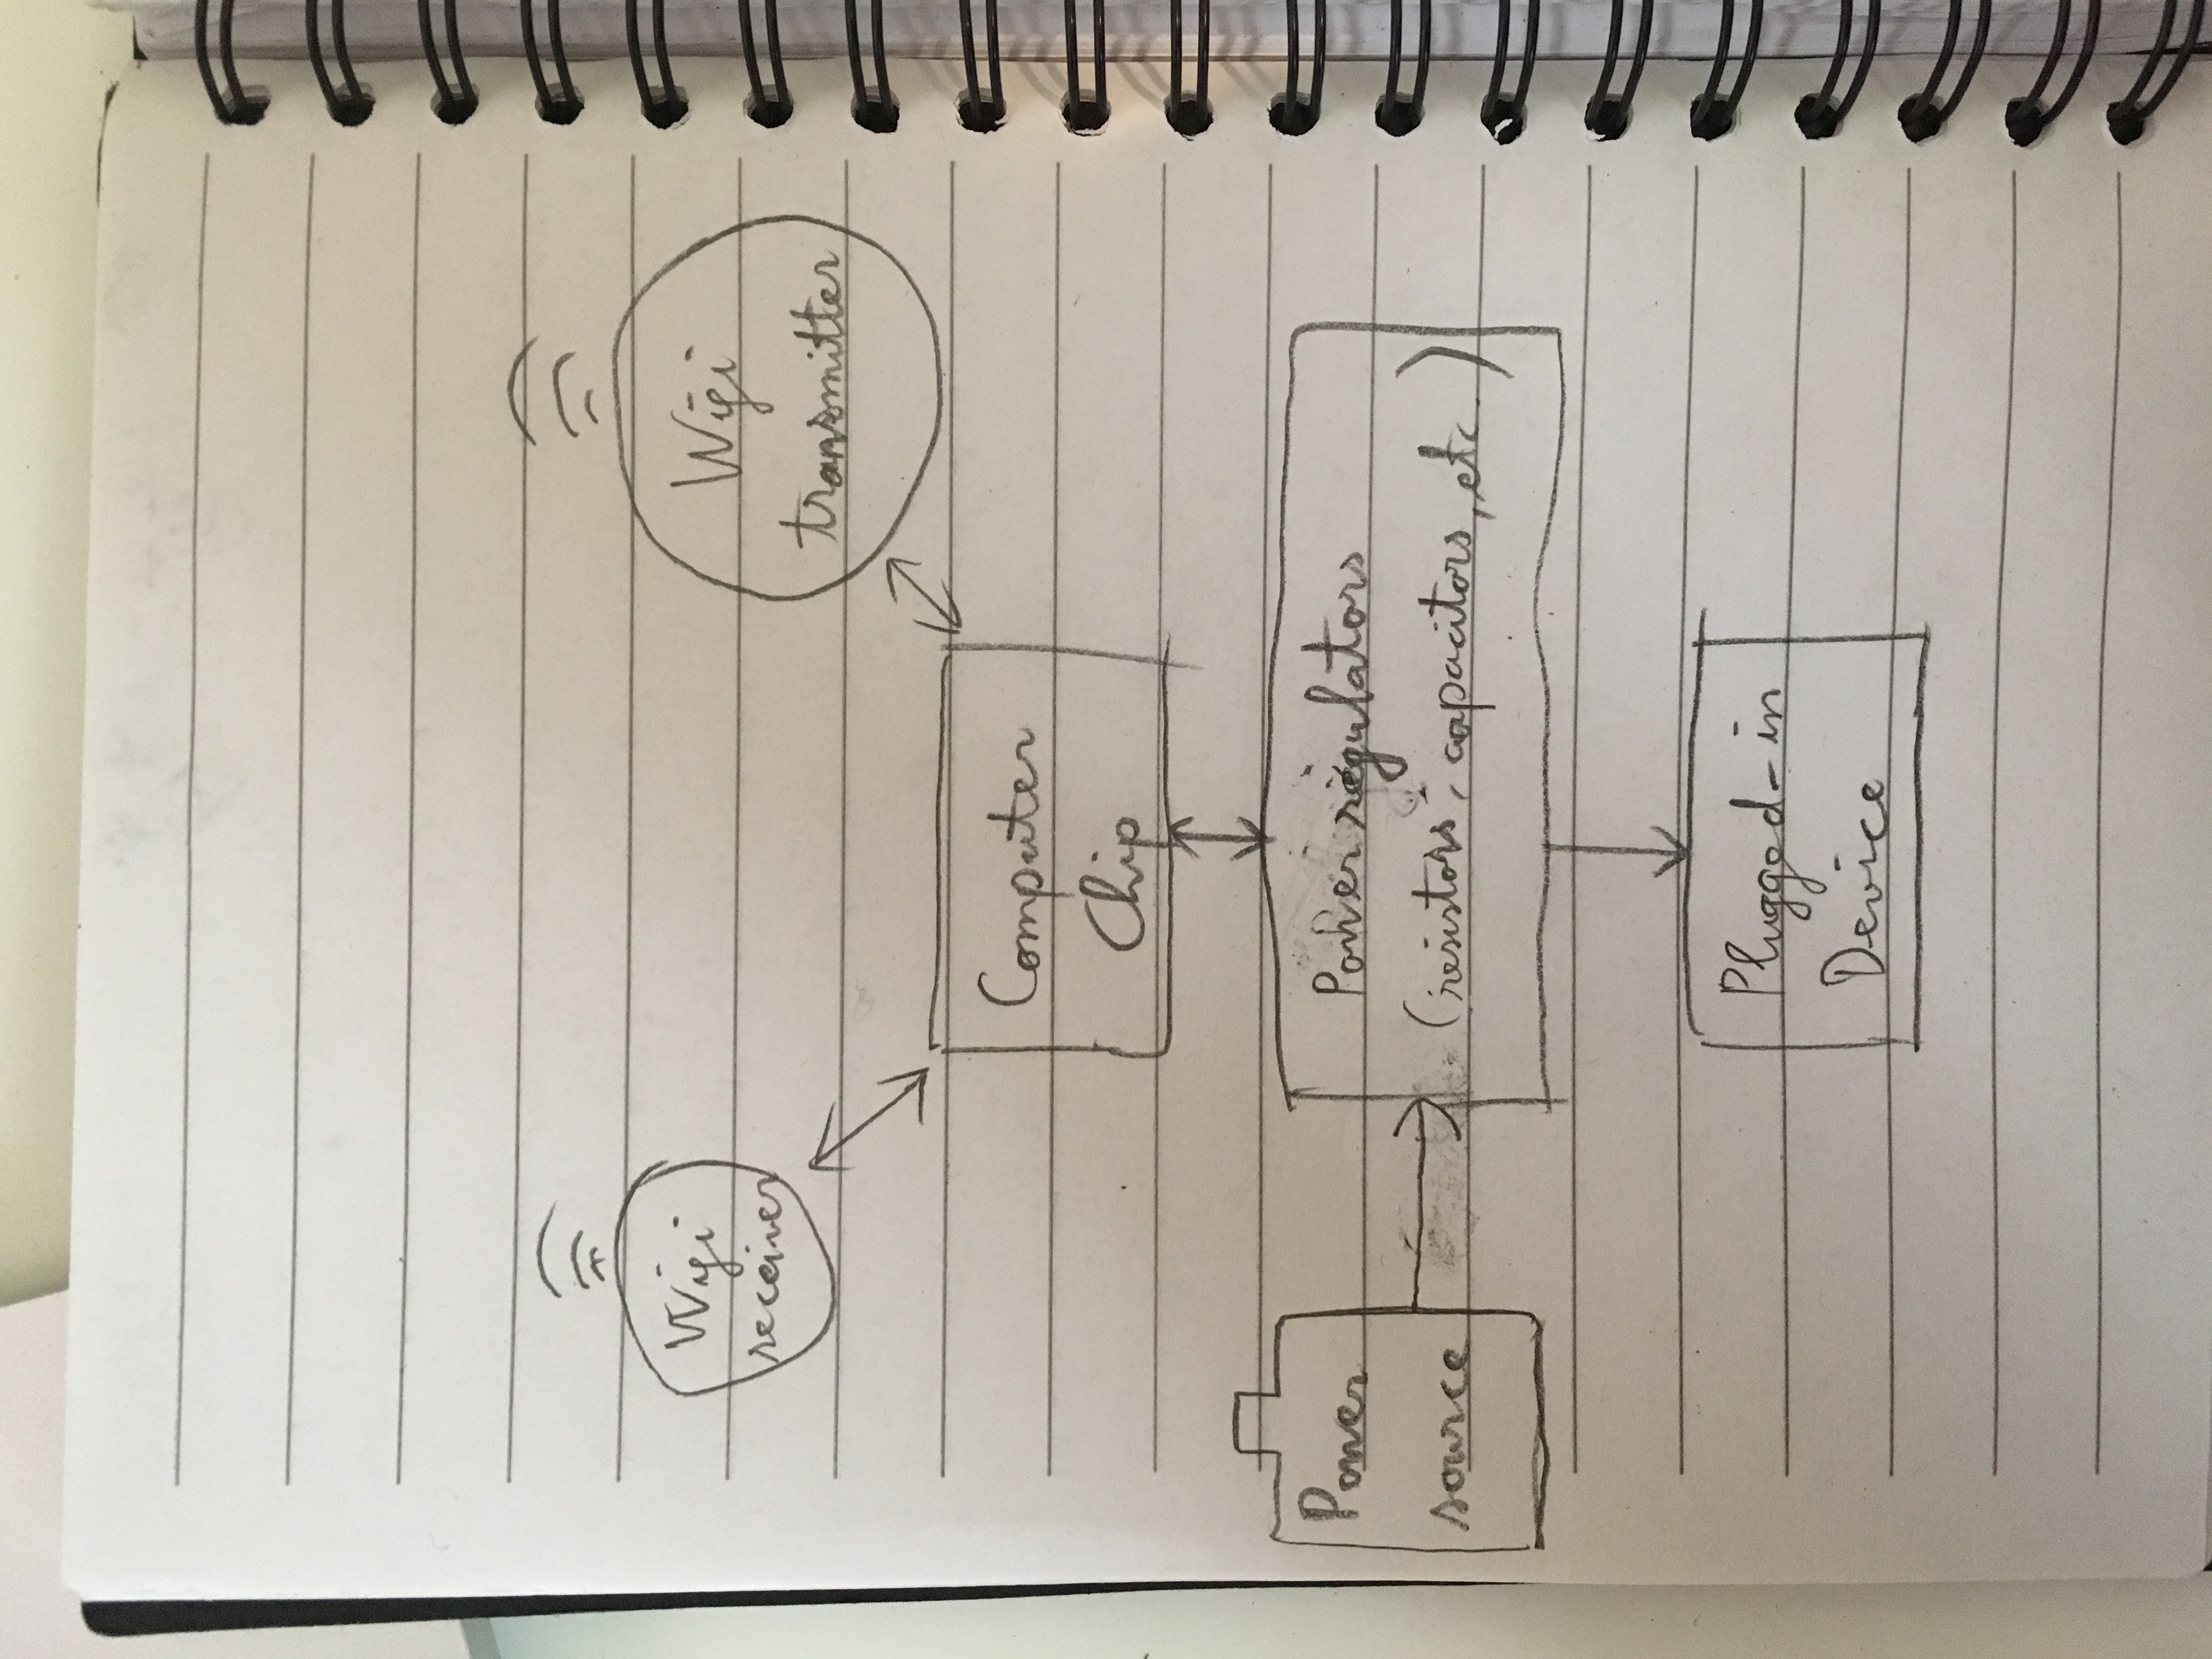 Wifi
receiver
Wifi
transmitter
Computer
Chip
Power
source
Power regulators
(resistors, capacitors, etc.)
Plugged-in
Device